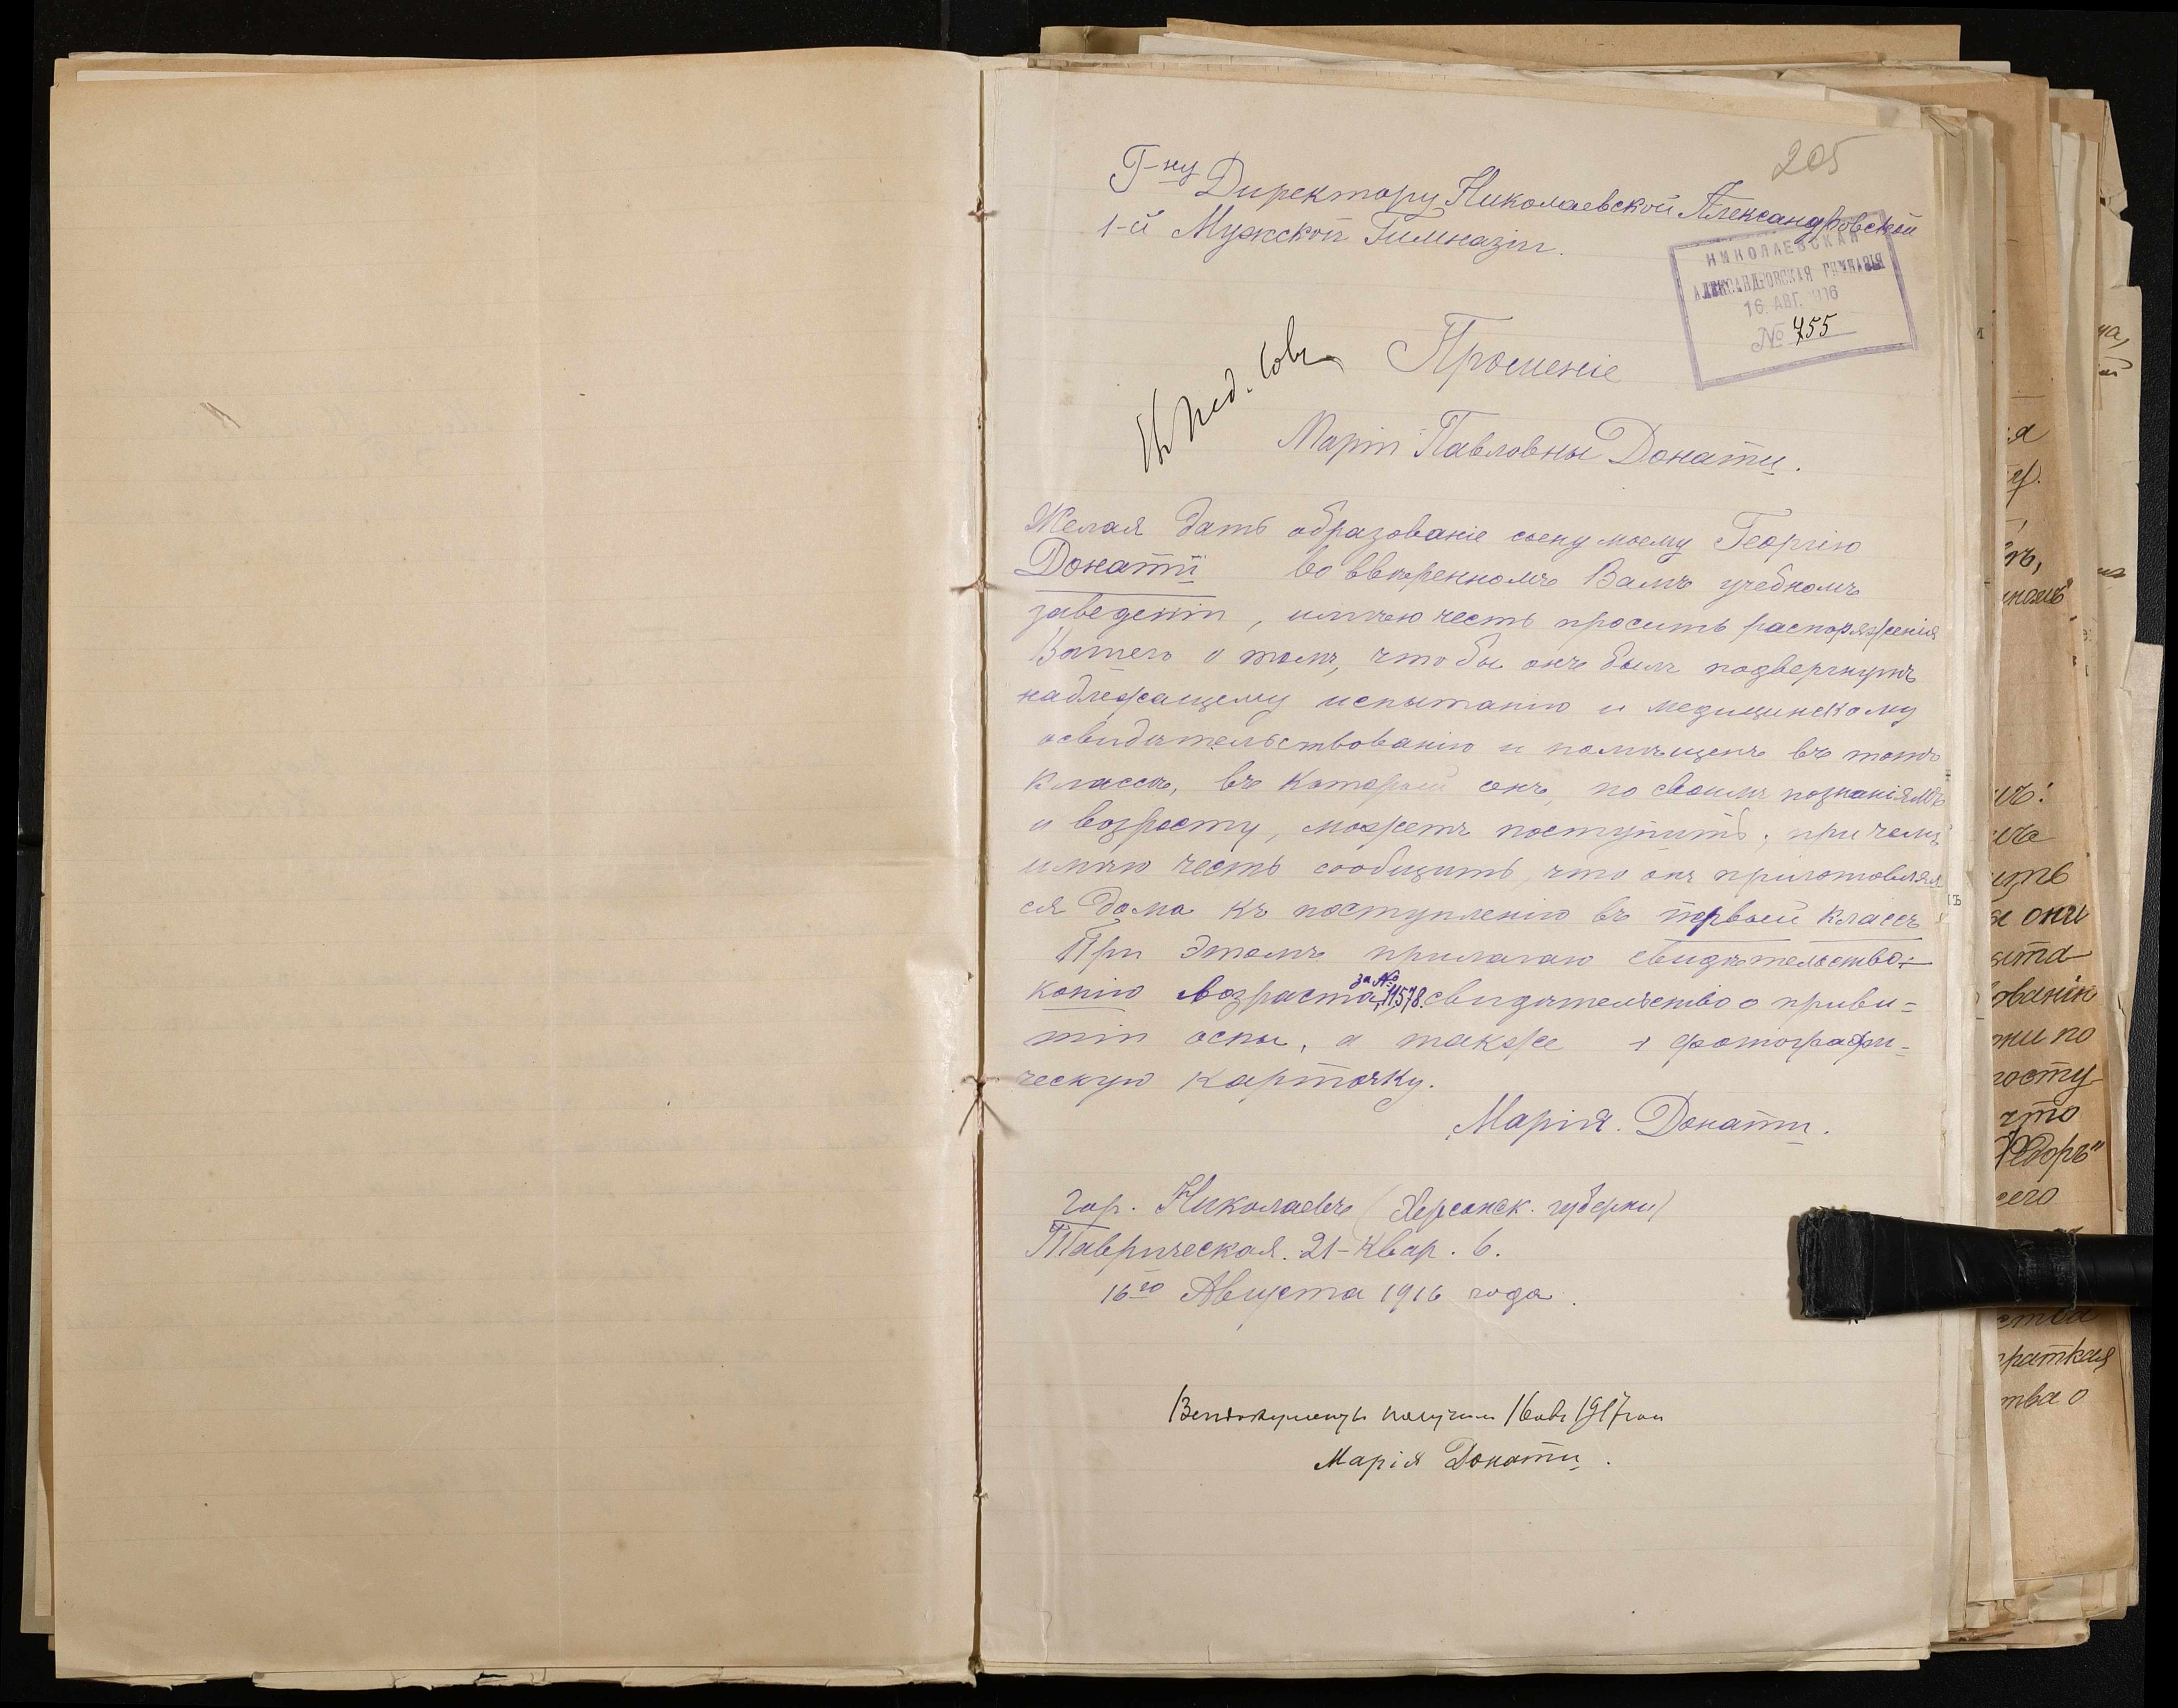 205
Г-ну Директору Николаевской Александровской
1-й Мужской Гимназіи.
НИКОЛАЕВСКАЯ
АЛЕКСАНДРОВСКАЯ ГИМНАЗІЯ
16 АВГ. 1916
№ 755
Прошеніе
Маріи Павловны Донати.
Желая дать образованіе сыну моему Георгію
Донати во ввѣренномъ Вамъ учебномъ
заведеніи, имѣю честь просить распоряженія
Вашего о томъ, чтобы онъ былъ подвергнутъ
надлежащему испытанію и медицинскому
освидѣтельствованію и помѣщенъ въ тотъ
классъ, въ который онъ, по своимъ познаніямъ
и возрасту, можетъ поступить; при чемъ
имѣю честь сообщить, что онъ приготовлял
ся дома къ поступленію въ первый классъ
При этомъ прилагаю свидѣтельство
копію возраста за № 11578. свидѣтельство о приви=
тіи оспы, а также 1 фотографи=
ческую карточку.
Марія Донати.
Гор. Николаевъ (Херсонск. губерни)
Таврическая. 21-квар. 6.
16го Августа 1916 года.
Все документы получила 16 авг 1917 года
Марія Донати.